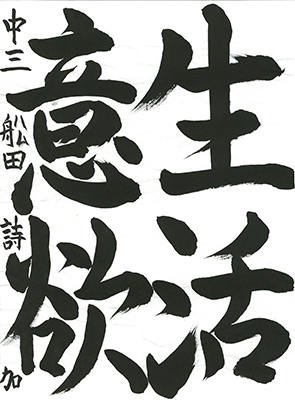 生活
意欲
中三 船田 詩加